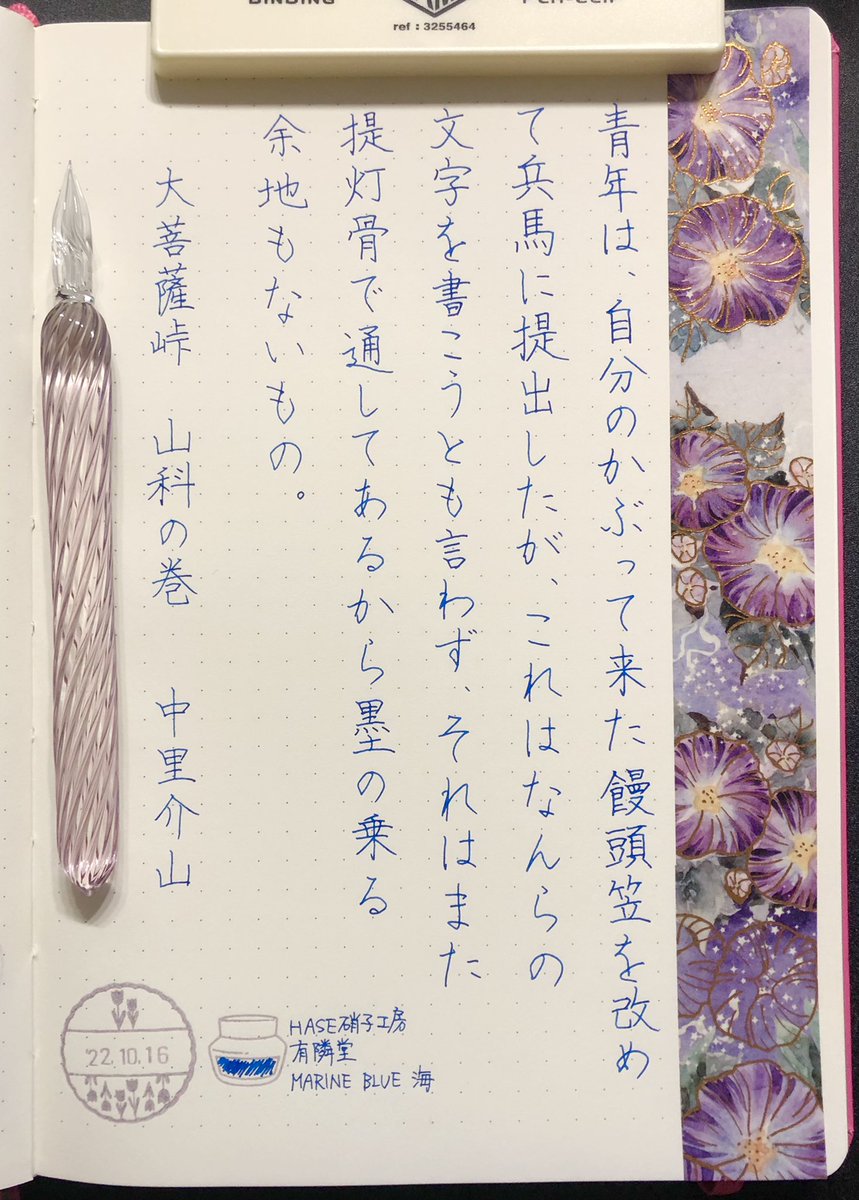 ref : 3255464
青年は、自分のかぶって来た饅頭笠を改め
て兵馬に提出したが、これはなんらの
文字を書こうとも言わず、それはまた
提灯骨で通してあるから墨の乗る
余地もないもの。
大菩薩峠　山科の巻　中里介山
22.10.16
HASE硝子工房
有隣堂
MARINE BLUE 海